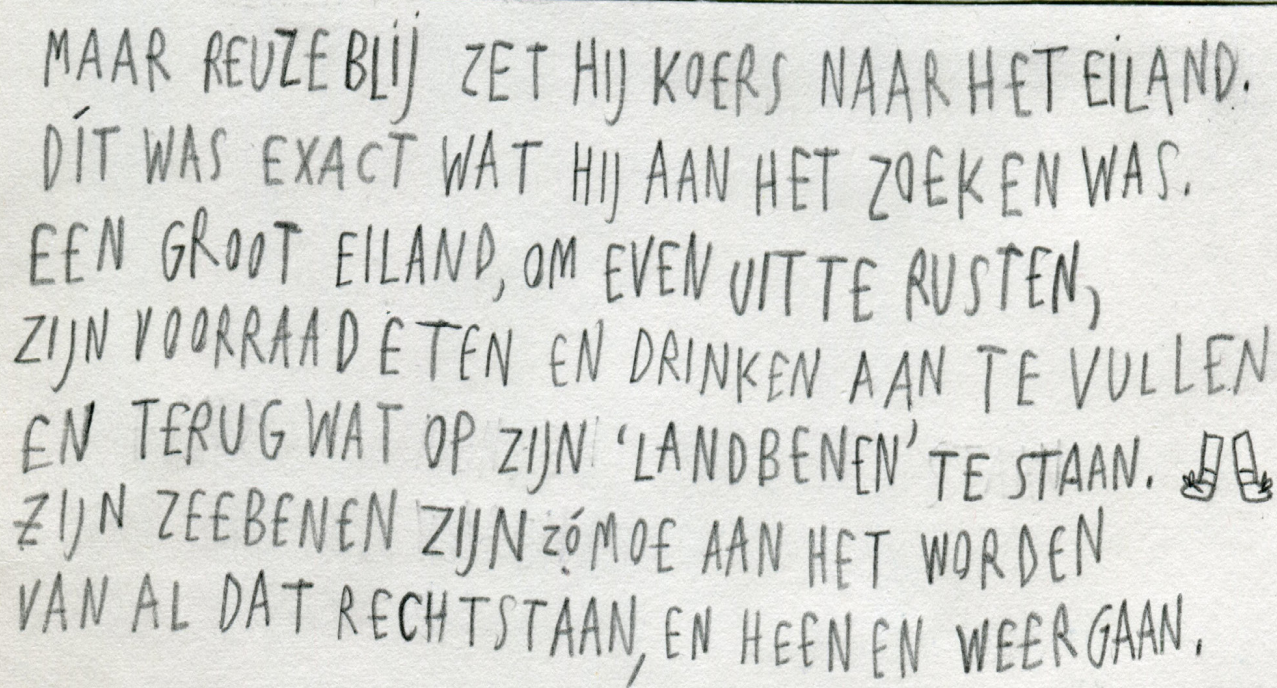 MAAR REUZEBLIJ ZET HIJ KOERS NAAR HET EILAND.
DÍT WAS EXACT WAT HIJ AAN HET ZOEKEN WAS.
EEN GROOT EILAND, OM EVEN UIT TE RUSTEN,
ZIJN VOORRAAD ETEN EN DRINKEN AAN TE VULLEN
EN TERUG WAT OP ZIJN ‘LANDBENEN’ TE STAAN.
ZIJN ZEEBENEN ZIJN ZÓ MOE AAN HET WORDEN
VAN AL DAT RECHTSTAAN, EN HEEN EN WEER GAAN.